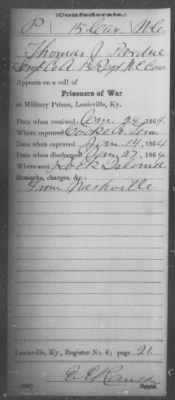 (Confederate.)
P 15 Cav. N.C.
Thomas J. Perdue
Sergt Co A 15 Regt N.C. Cav
Appears on a roll of
Prisoners of War
at Military Prison, Louisville, Ky.
Date when received, Jan. 24, 1864.
Where captured, Cocke Co. Tenn
Date when captured, Jan. 14, 1864
Date when discharged, Jan. 27, 1864
Where sent, Rock Island
Remarks, charges, &c.:
From Nashville
Louisville, Ky., Register No. 6; page 21
Copyist.